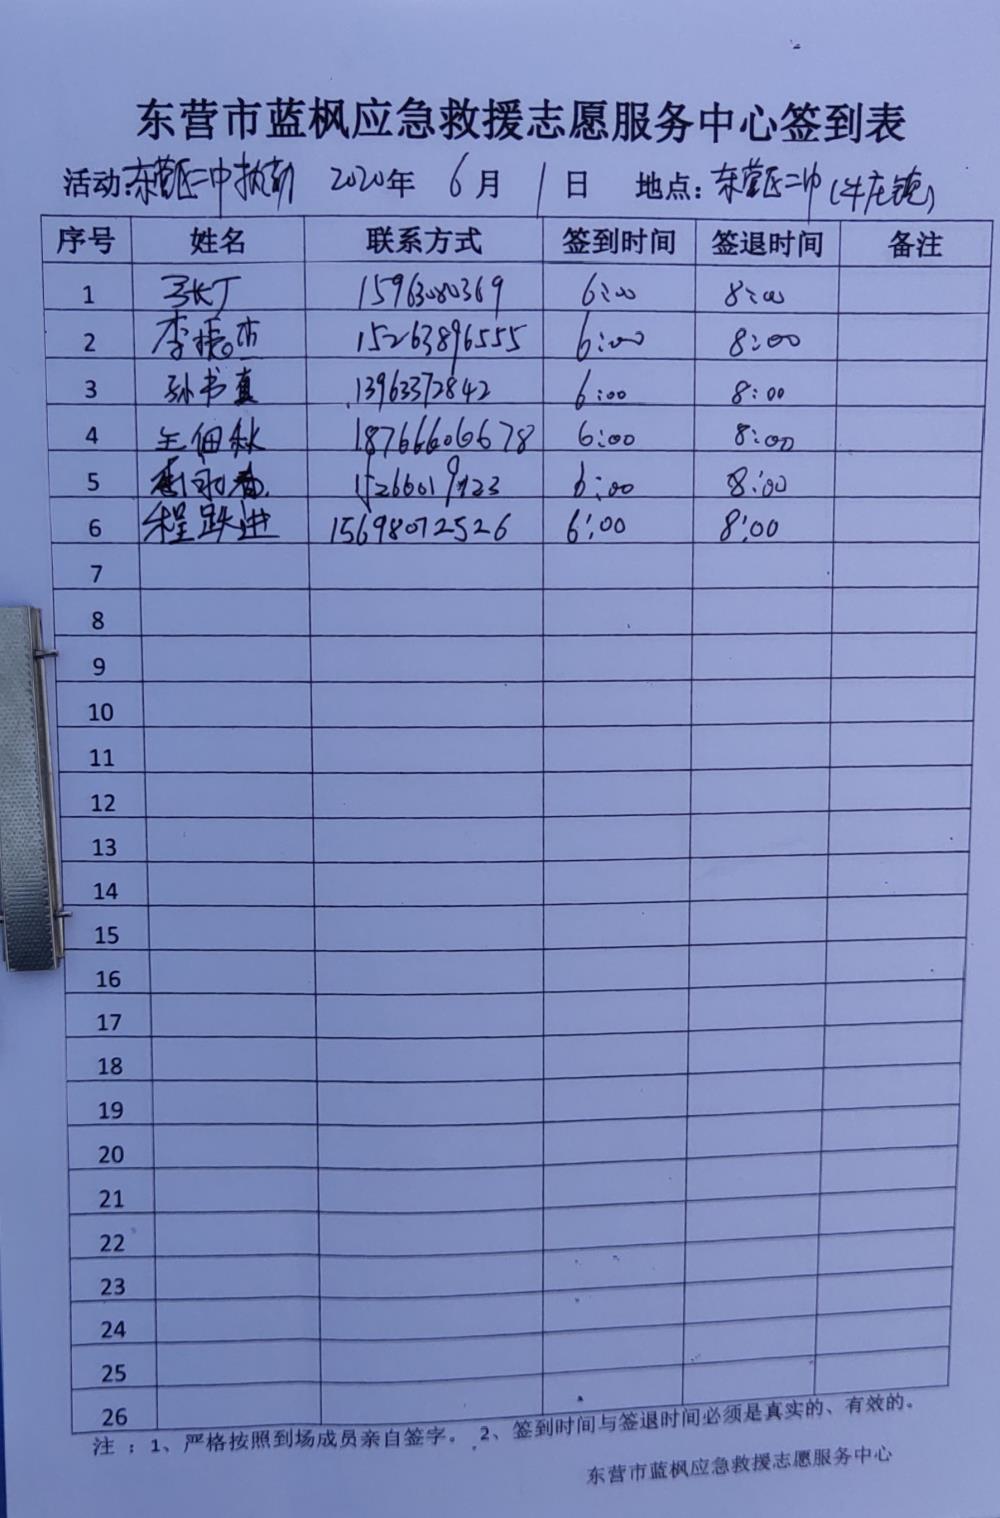 东营市蓝枫应急救援志愿服务中心签到表
活动:东营区二中执勤 2020年 6月 1日 地点:东营区二中(牛庄镇)
序号 姓名 联系方式 签到时间 签退时间 备注
1 张丁 15963080369 6:00 8:00
2 李振杰 15263896555 6:00 8:00
3 孙书真 13963372842 6:00 8:00
4 王佃秋 18766606678 6:00 8:00
5 6:00 8:00
6 程跃进 15698072526 6:00 8:00
7
8
9
10
11
12
13
14
15
16
17
18
19
20
21
22
23
24
25
26
注:1、严格按照到场成员亲自签字。2、签到时间与签退时间必须是真实的、有效的。
东营市蓝枫应急救援志愿服务中心